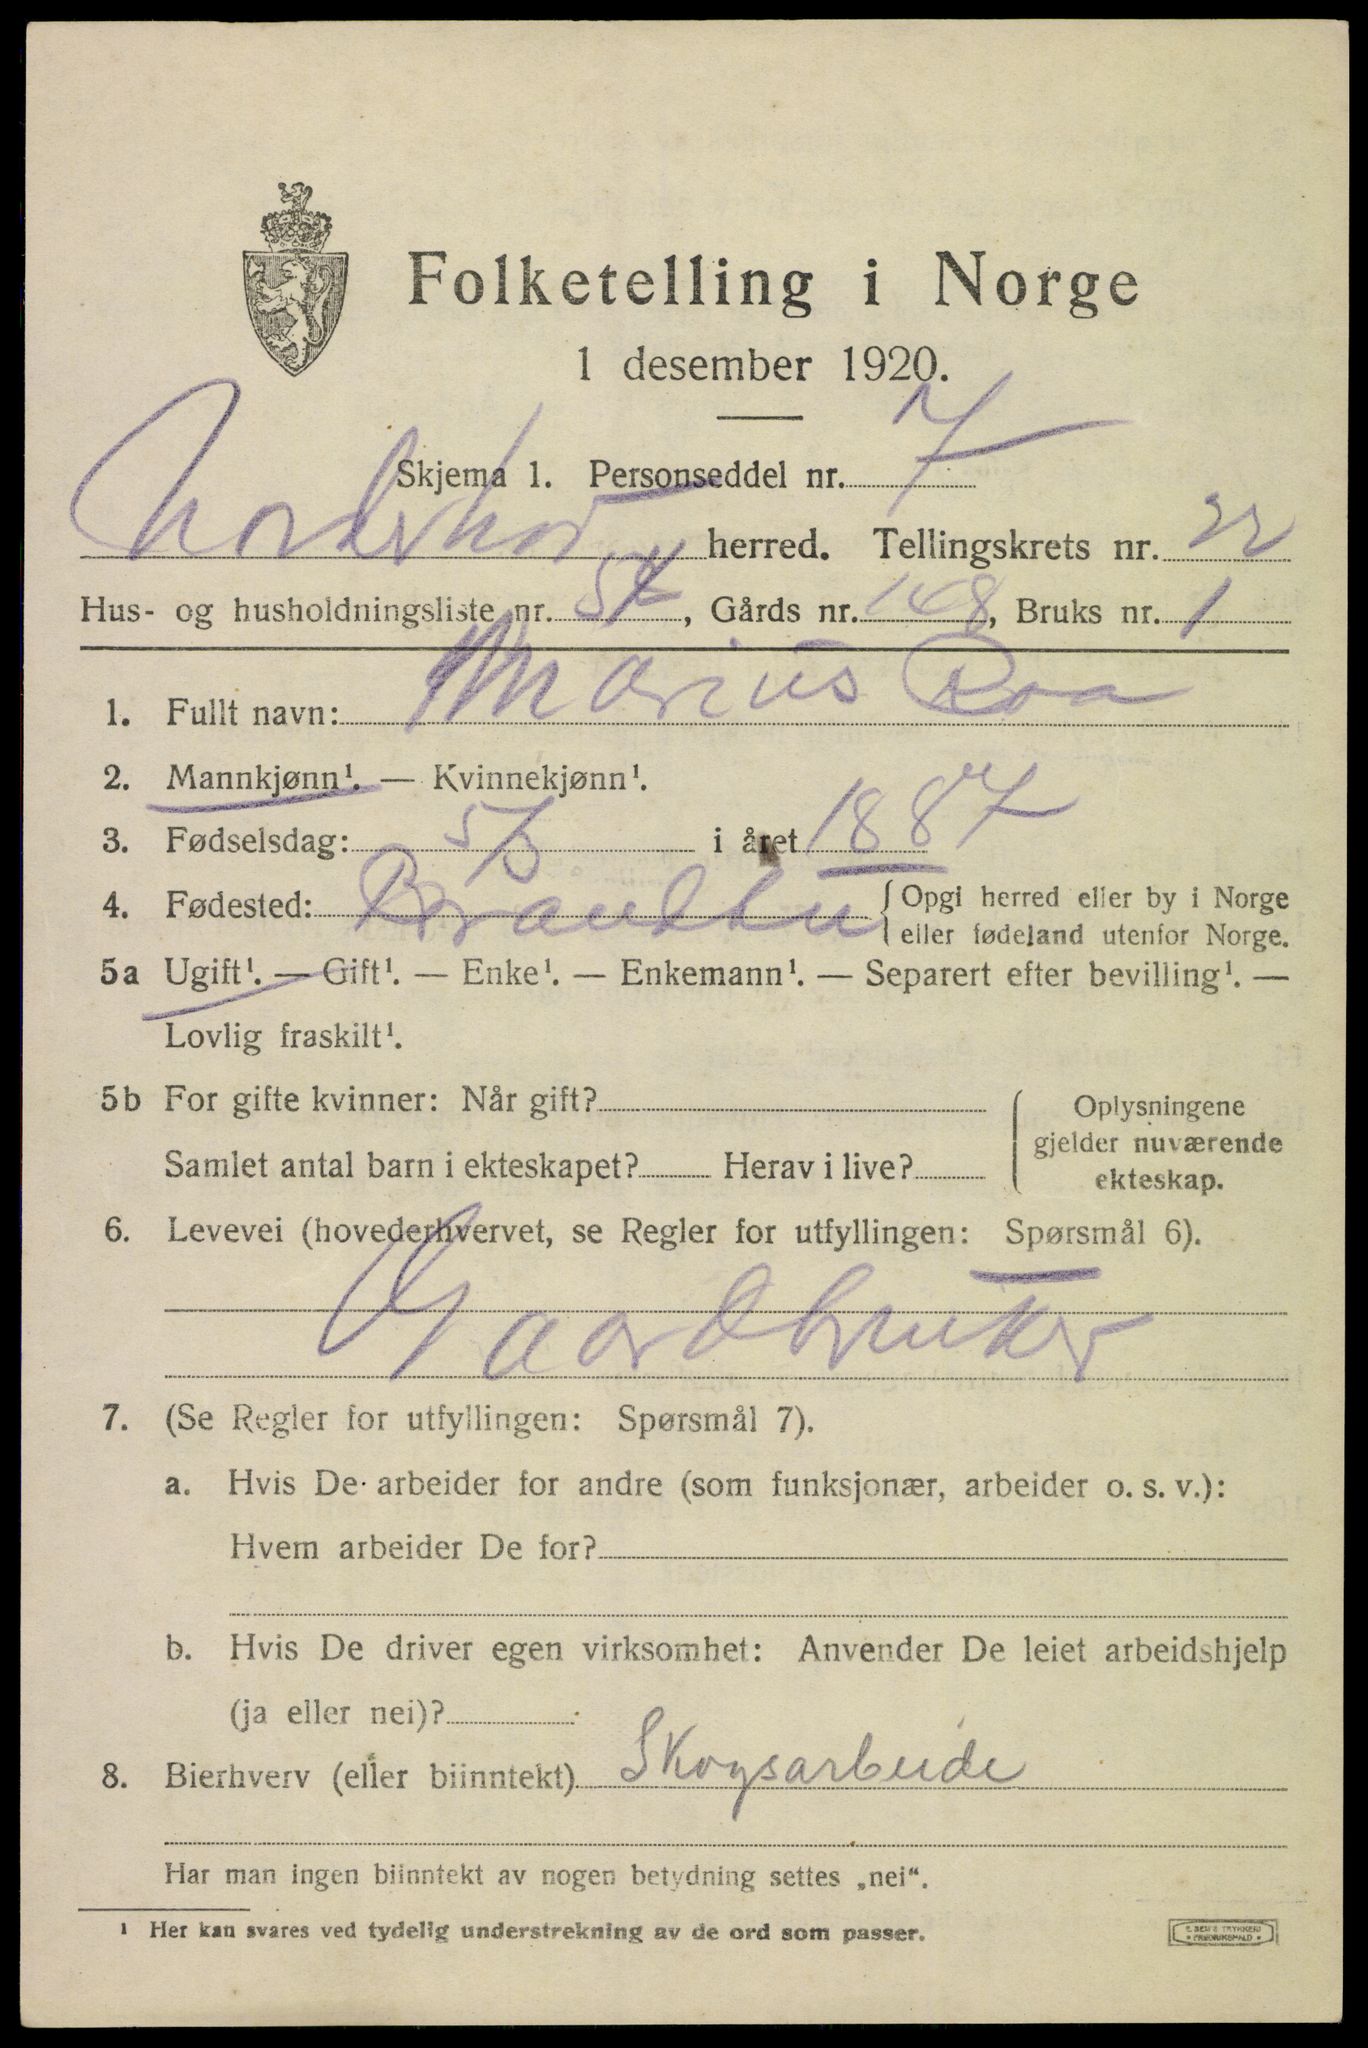 Folketelling i Norge
1 desember 1920.
Skjema 1. Personseddel nr. 7
Norderhov herred. Tellingskrets nr. 22
Hus- og husholdningsliste nr. , Gårds nr. 148, Bruks nr. 1
1. Fullt navn: Marius Roa
2. Mannkjønn¹. — Kvinnekjønn¹.
3. Fødselsdag: 5/5 i året 1887
4. Fødested: Brandbu { Opgi herred eller by i Norge
eller fødeland utenfor Norge.
5a Ugift¹. — Gift¹. — Enke¹. — Enkemann¹. — Separert efter bevilling¹. —
Lovlig fraskilt¹.
5b For gifte kvinner: Når gift?
Samlet antal barn i ekteskapet? Herav i live?
Oplysningene
gjelder nuværende
ekteskap.
6. Levevei (hovederhvervet, se Regler for utfyllingen: Spørsmål 6).
Gaardbruker
7. (Se Regler for utfyllingen: Spørsmål 7).
a. Hvis De arbeider for andre (som funksjonær, arbeider o. s. v.):
Hvem arbeider De for?
b. Hvis De driver egen virksomhet: Anvender De leiet arbeidshjelp
(ja eller nei)?
8. Bierhverv (eller biinntekt) Skogsarbeide
Har man ingen biinntekt av nogen betydning settes „nei“.
¹ Her kan svares ved tydelig understrekning av de ord som passer.
E. SEM'S TRYKKERI
FREDRIKSHALD